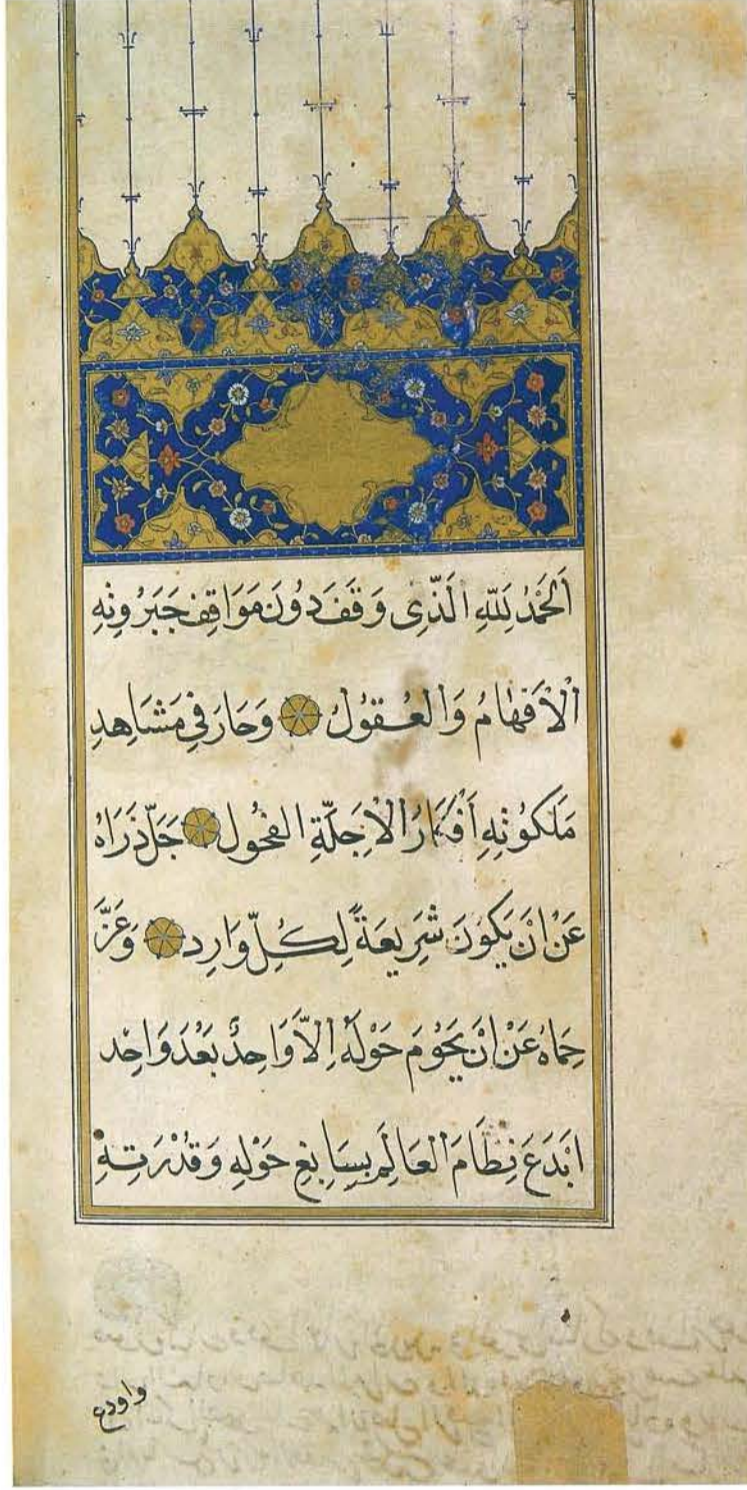 اَلْحَمْدُ لِلّٰهِ الَّذِى وَقَفَ دُونَ مَوَاقِفِ جَبَرُوتِهِ
اَلْاَفْهَامُ وَالْعُقُولُ وَحَارَ فِى مَشَاهِدِ
مَلَكُوتِهِ اَفْكَارُ الْاَجِلَّةِ الفُحُول جَلَّ ذَرَاهُ
عَنْ اَنْ يَكُونَ شَرِيعَةً لِكُلِّ وَارِد وَعَزَّ
حِمَاهُ عَنْ اَنْ يَحُومَ حَوْلَهُ اِلَّا وَاحِدٌ بَعْدَ وَاحِد
اَبْدَعَ نِظَامَ الْعَالَمِ بِسَابِغِ حَوْلِهِ وَقُدْرَتِهِ
واودع